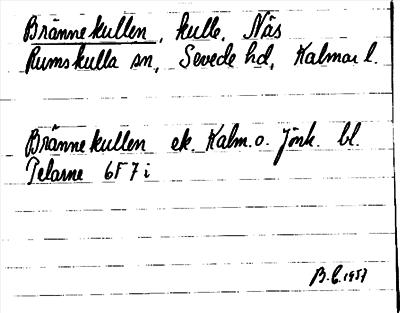 Brännekullen, kulle, Näs
Rumskulla sn, Sevede hd, Kalmar l.
Brännekullen ek. Kalm. o. Jönk. bl.
Pelarne 6F7i
B.C. 1957